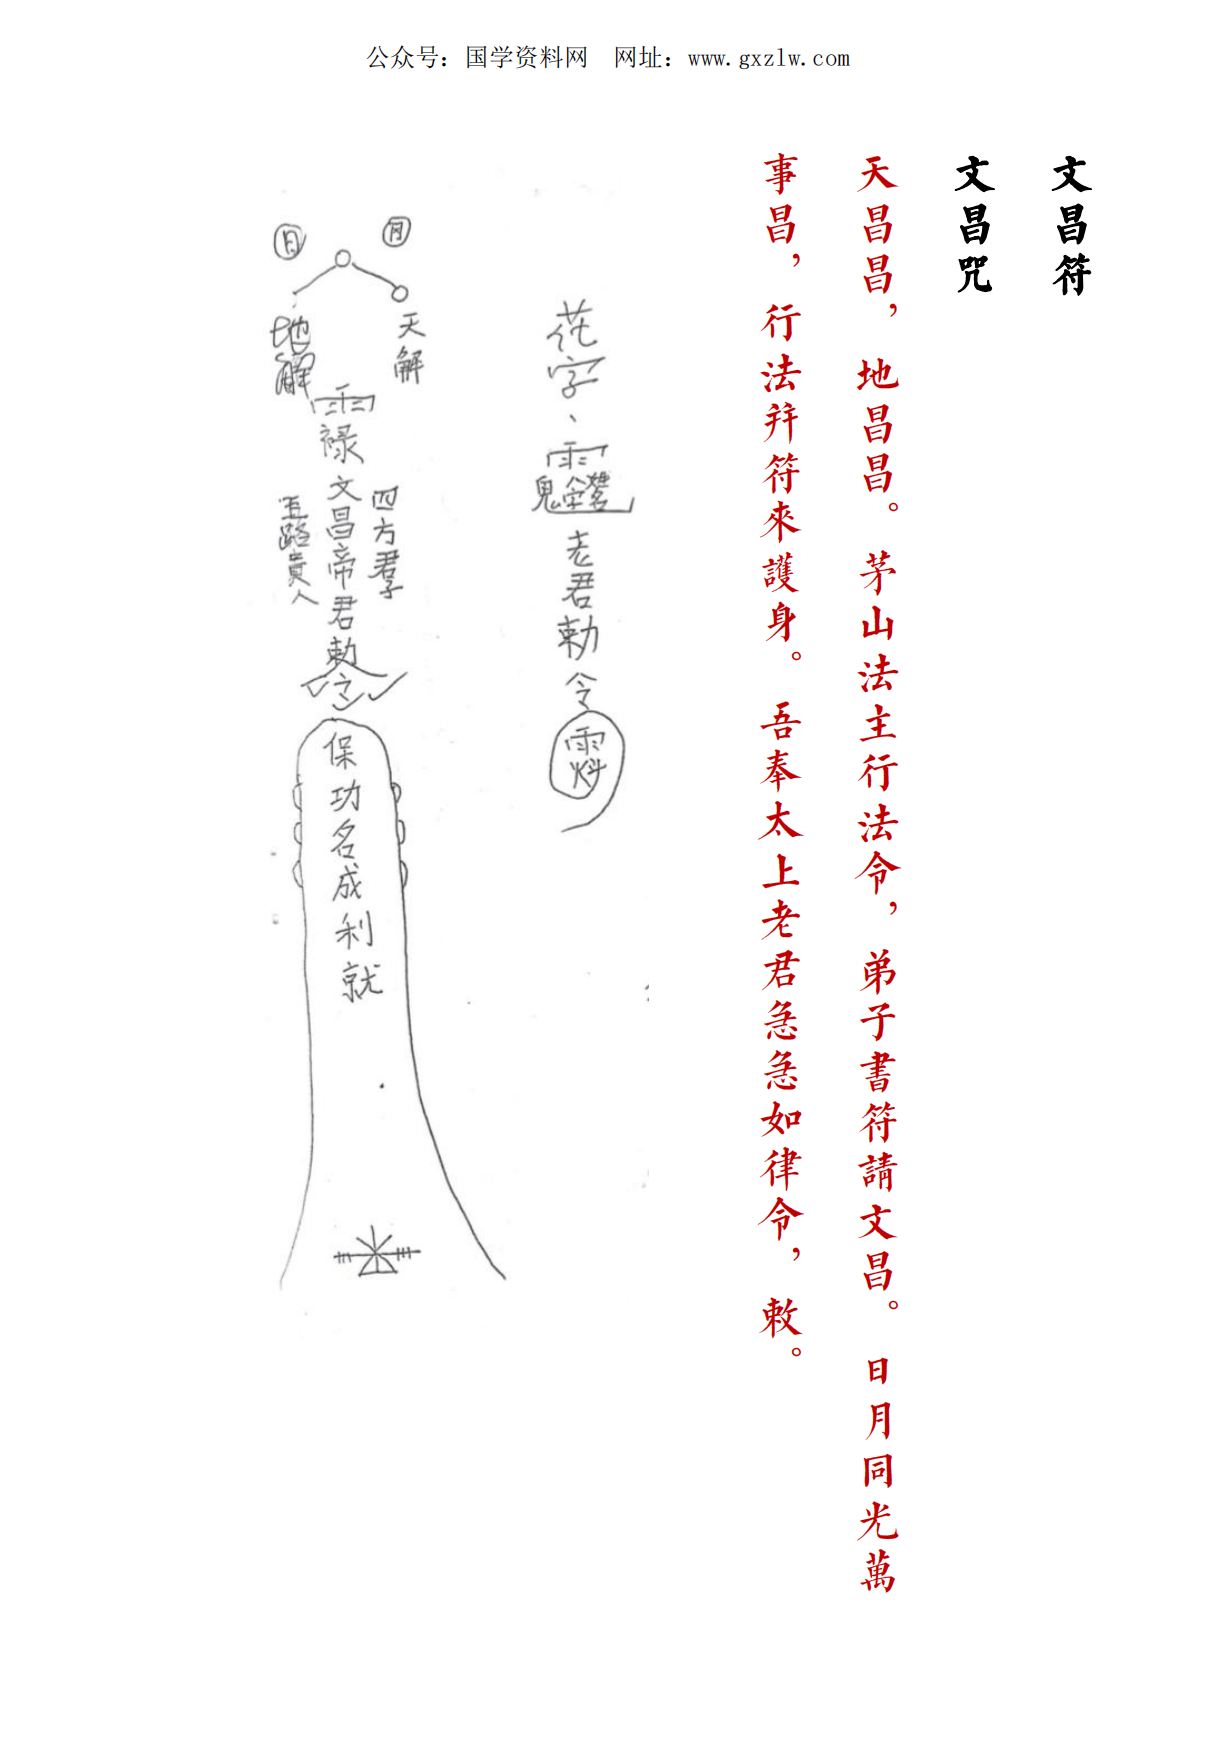 公众号：国学资料网　网址：www.gxzlw.com
文昌符
文昌咒
天昌昌，地昌昌。茅山法主行法令，弟子書符請文昌。日月同光萬
事昌，行法辩符來護身。吾奉太上老君急急如律令，敕。
花字、
老君勅令
日
月
天解
地解
雨
禄
文昌帝君勅令
四方君子
五路貴人
保功名成利就